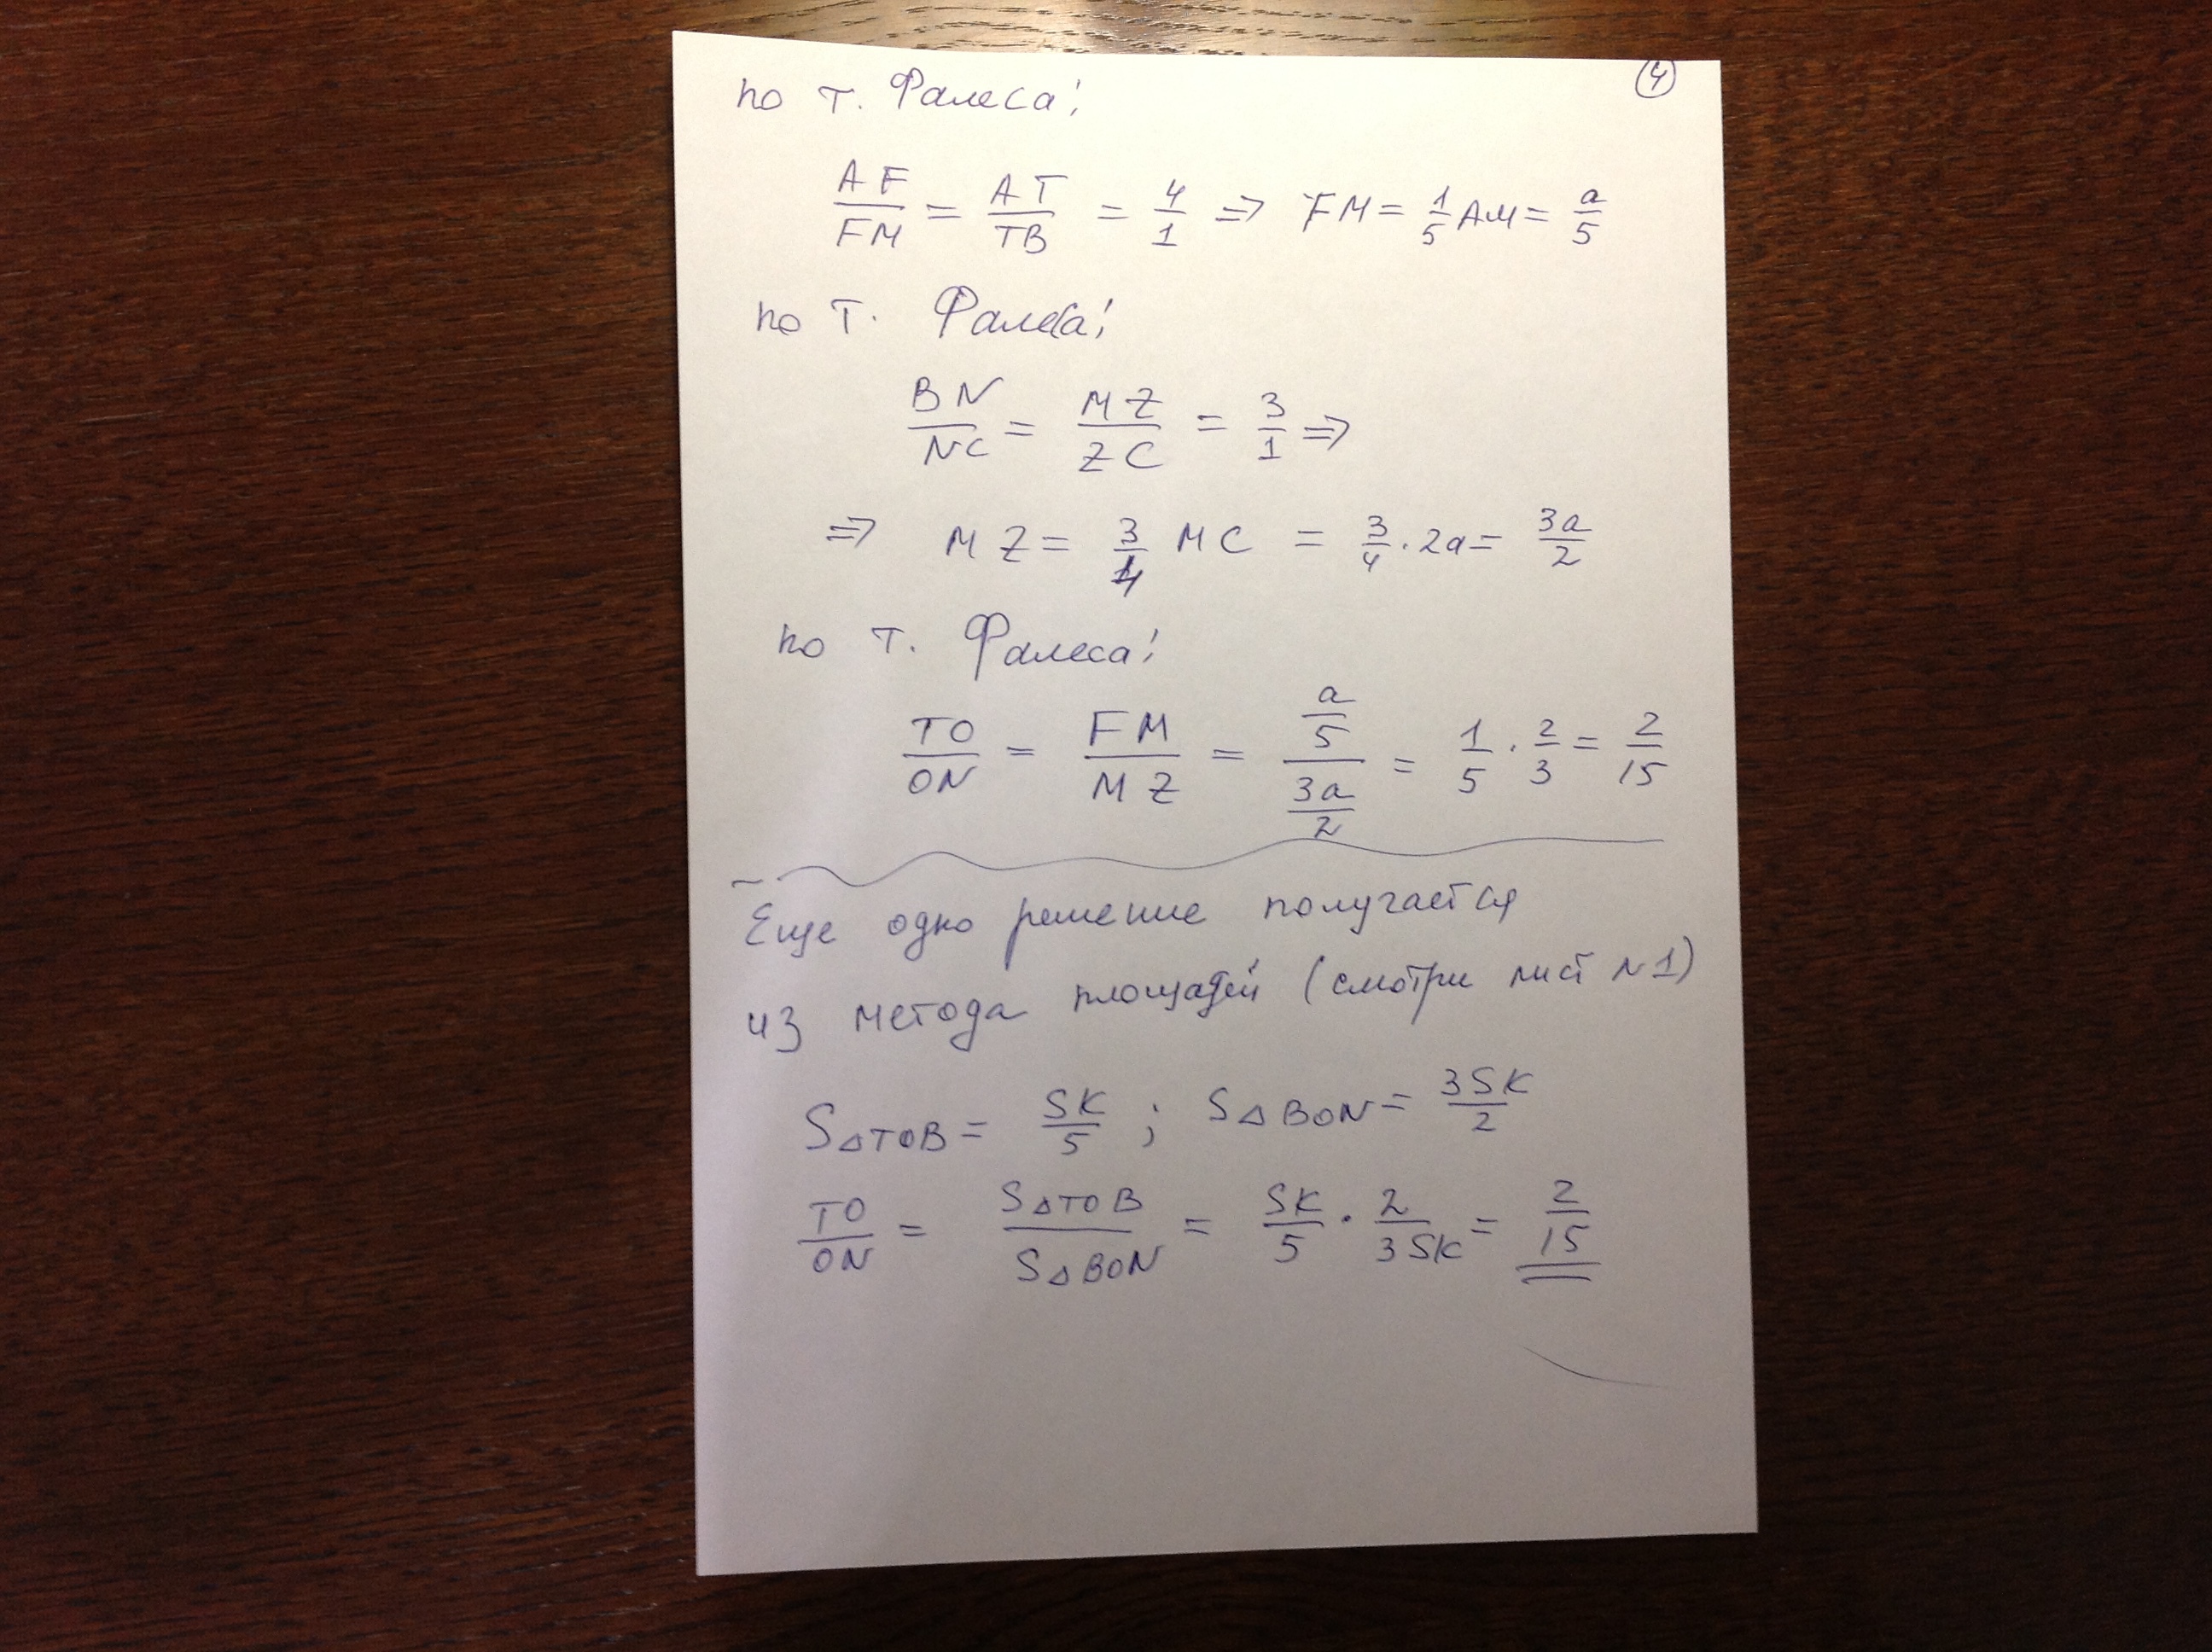 ④
по т. Фалеса:
AF/FM = AT/TB = 4/1 ⇒ FM = 1/5 AM = a/5
по т. Фалеса:
BN/NC = MZ/ZC = 3/1 ⇒
⇒ MZ = 3/4 MC = 3/4 · 2a = 3a/2
по т. Фалеса:
TO/ON = FM/MZ = (a/5)/(3a/2) = 1/5 · 2/3 = 2/15
Еще одно решение получается
из метода площадей (смотри лист N1)
S△TOB = SK/5 ; S△BON = 3SK/2
TO/ON = S△TOB/S△BON = SK/5 · 2/3SK = 2/15